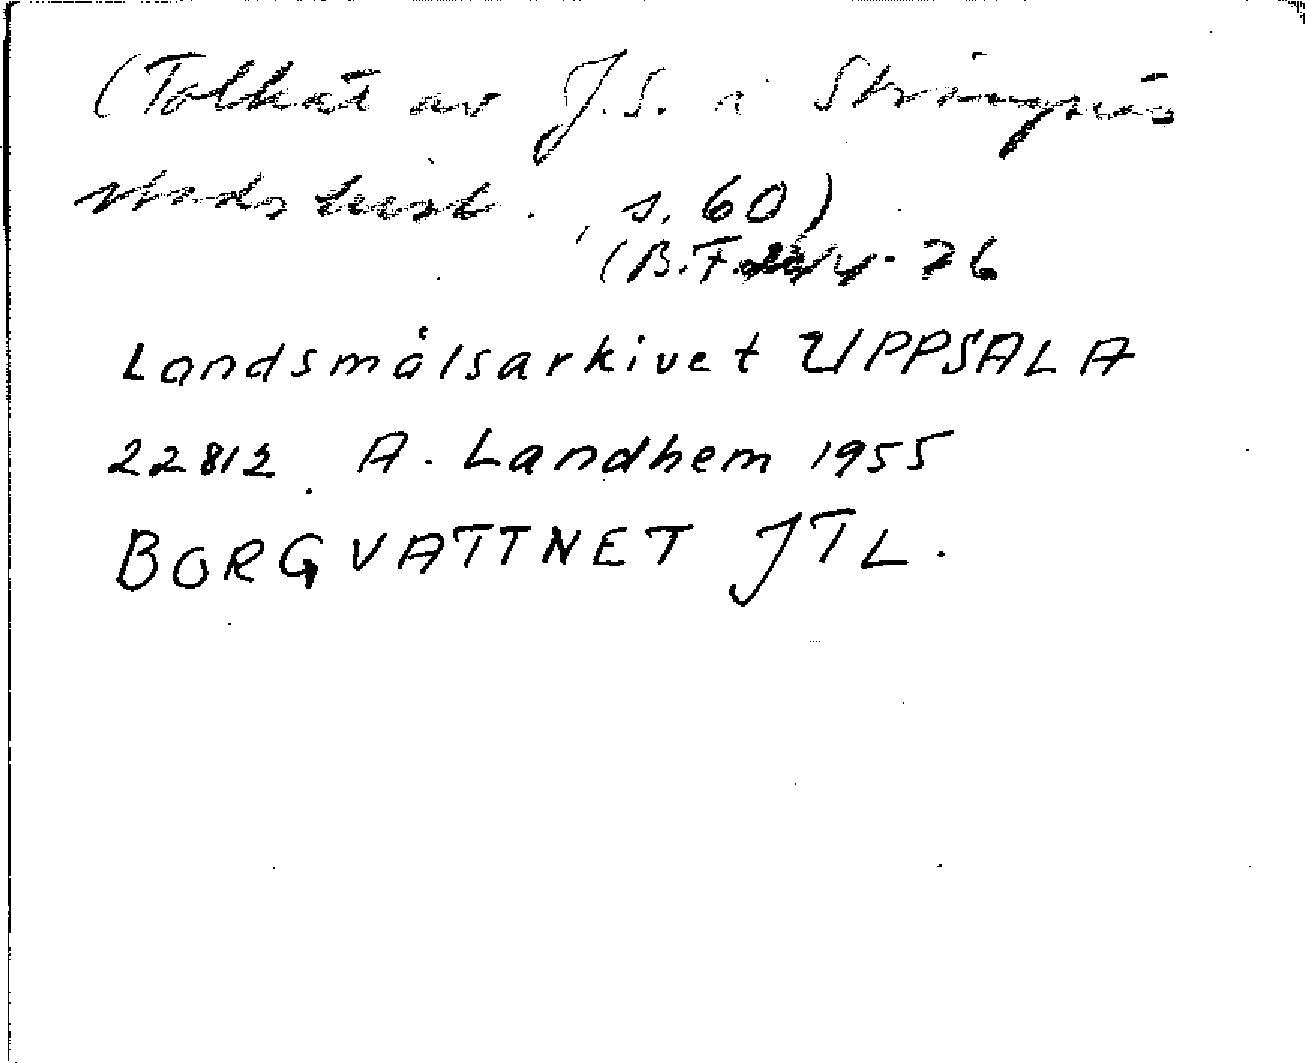 (Tolkat av J.S. i Strängnäs
stads hist. , s. 60)
(B.F. 4-76
Landsmålsarkivet UPPSALA
22812 A. Landhem 1955
BORGVATTNET JTL.